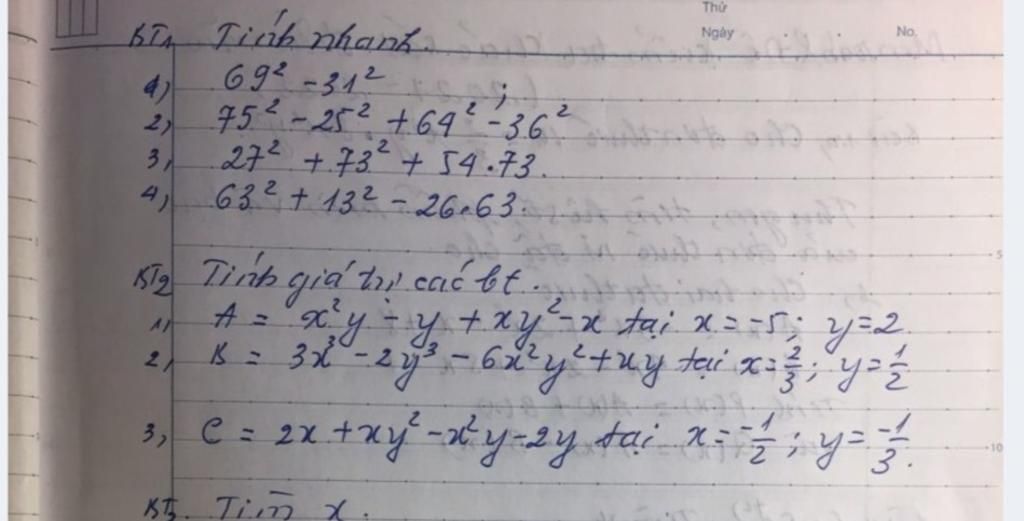 Thứ
Ngày No.
BT1 Tính nhanh.
1) 69² - 31² ;
2, 75² - 25² + 64² - 36²
3, 27² + 73² + 54.73.
4, 63² + 13² - 26.63.
5
BT2 Tính giá trị các bt.
1, A = x²y - y + xy² - x tại x = -5; y = 2.
2, B = 3x³ - 2y³ - 6x²y² + xy tại x = 2/3; y = 1/2
3, C = 2x + xy² - x²y - 2y tại x = -1/2; y = -1/3.
10
BT3 Tìm x.